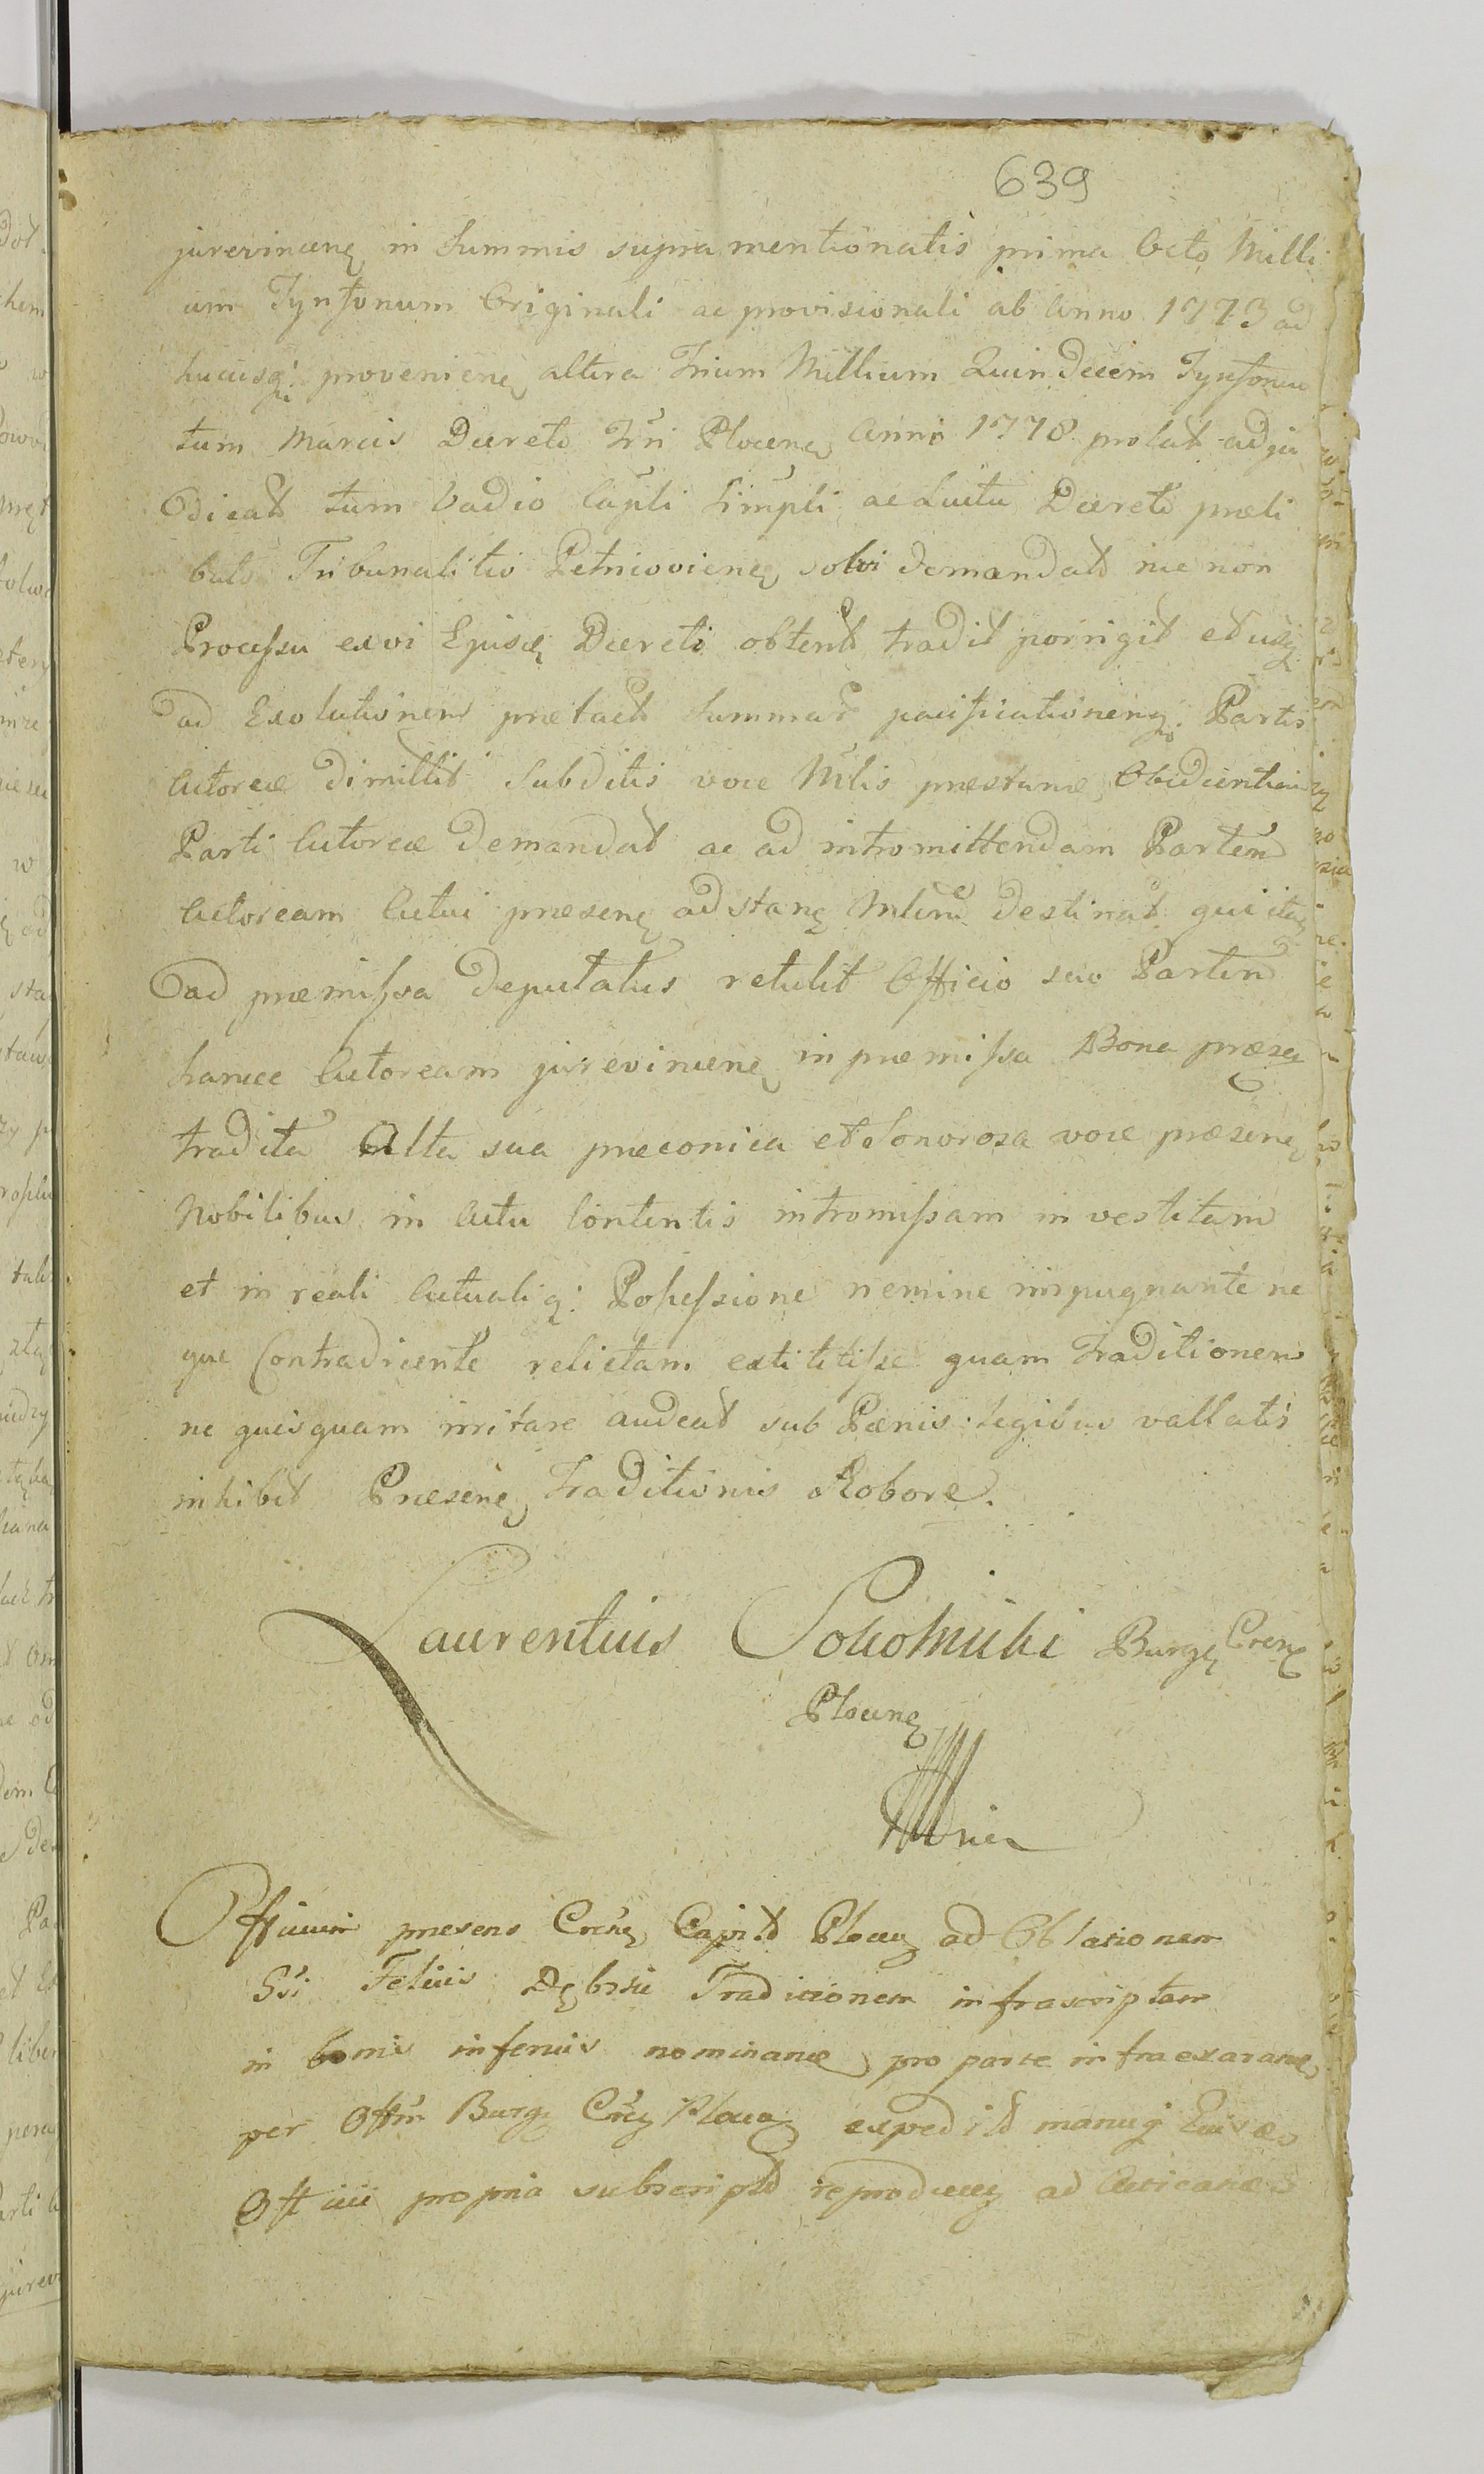 639
jurevincenę in Summis supra mentionatis prima Octo Milli
um Tynfonum Originali ac provisionali ab Anno 1773 ad
hucusq: provenienę altera Trium Millium Quindecim Tynfonu
tum Marcis Decreto Trii Plocenę Anni 1778 prolat adju
dicat tum Vadio Cupli Simpli ac Luitu Decreto præli
bato Tribunalitio Petricovienę solvi demandat nec non
Processu ex vi Ejusdę Decreti obtent tradit porrigit et usq
ad Exolutionem prætact Summar pacificationemq Partis
Actoreæ dimittit Subditis voce Mlis præstanę Obedientiam
Parti Actoreæ demandat ac ad intromittendam Partem
Actoream Actui præsenę adstanę Mlem destinat qui itaę
ad præmissa deputatus retulit Officio suo Partem
hancce Actoream jurevincenę in præmissa Bona præsen
tradita Alta sua preconica et Sonorosa voce præsenę
Nobilibus in Actu Contentis intromissam investitam
et in reali Actualiq: Possessione nemine impugnante ne
que Contradicente relictam extitisse quam Traditionem
ne quisquam irritare audeat sub Pœnis legibus vallatis
inhibet Præsenę Traditionis Robore.
Laurentius Sokolnicki Burgę Crenę
Plocenę
Officium presens Crenę Capit Plocę ad Oblationem
Gsi Felicis Dębski Traditionem infrascriptam
in bonis inferius nominanę pro parte infra exaranę
per Offm Burgę Creę Plocę expedit manuq Ejusdę
Officii propria subscript reproducę ad Acticanę